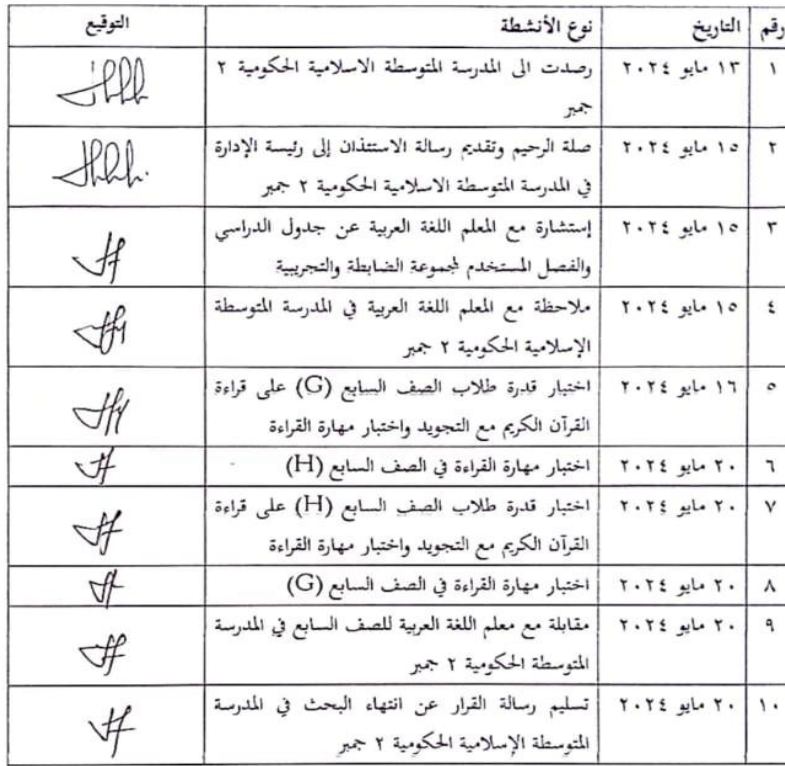 رقم التاريخ نوع الأنشطة التوقيع
١ ١٣ مايو ٢٠٢٤ رصدت الى المدرسة المتوسطة الاسلامية الحكومية ٢
جمبر
٢ ١٥ مايو ٢٠٢٤ صلة الرحيم وتقديم رسالة الاستئذان إلى رئيسة الإدارة
في المدرسة المتوسطة الاسلامية الحكومية ٢ جمبر
٣ ١٥ مايو ٢٠٢٤ إستشارة مع المعلم اللغة العربية عن جدول الدراسي
والفصل المستخدم لمجموعة الضابطة والتجريبية
٤ ١٥ مايو ٢٠٢٤ ملاحظة مع المعلم اللغة العربية في المدرسة المتوسطة
الإسلامية الحكومية ٢ جمبر
٥ ١٦ مايو ٢٠٢٤ اختبار قدرة طلاب الصف السابع (G) على قراءة
القرآن الكريم مع التجويد واختبار مهارة القراءة
٦ ٢٠ مايو ٢٠٢٤ اختبار مهارة القراءة في الصف السابع (H)
٧ ٢٠ مايو ٢٠٢٤ اختبار قدرة طلاب الصف السابع (H) على قراءة
القرآن الكريم مع التجويد واختبار مهارة القراءة
٨ ٢٠ مايو ٢٠٢٤ اختبار مهارة القراءة في الصف السابع (G)
٩ ٢٠ مايو ٢٠٢٤ مقابلة مع معلم اللغة العربية للصف السابع في المدرسة
المتوسطة الحكومية ٢ جمبر
١٠ ٢٠ مايو ٢٠٢٤ تسليم رسالة القرار عن انتهاء البحث في المدرسة
المتوسطة الإسلامية الحكومية ٢ جمبر